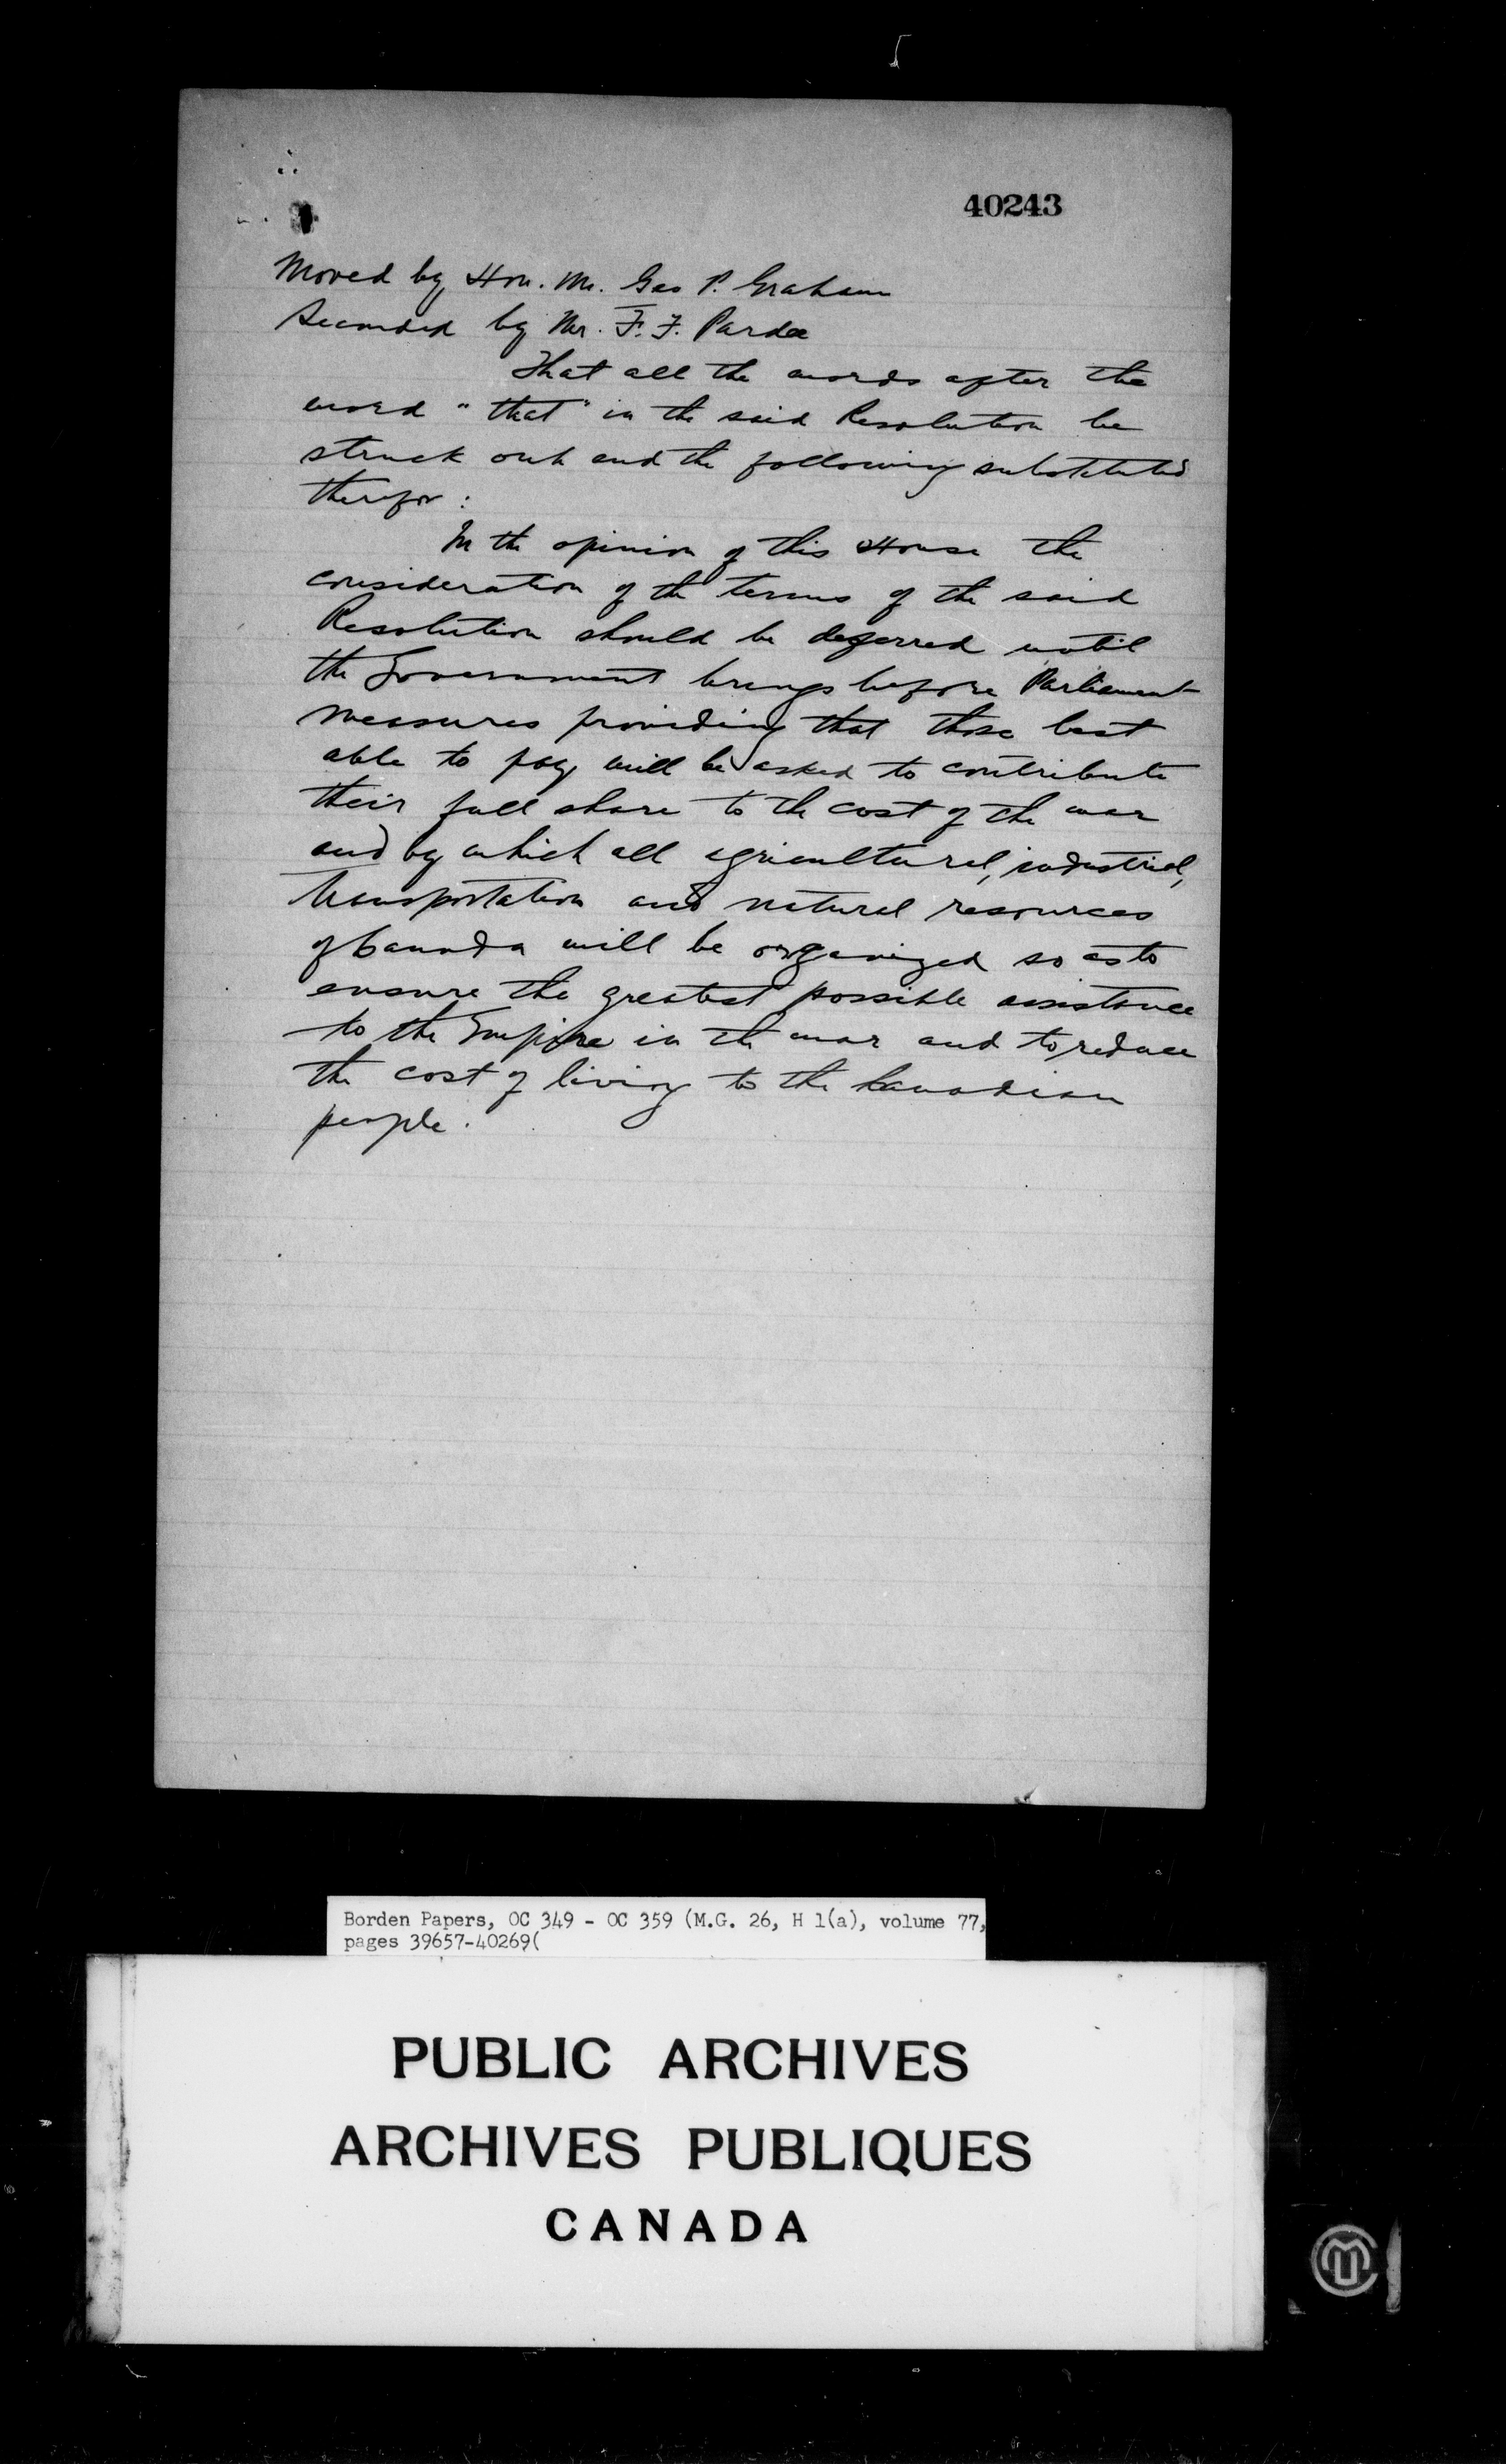 40243
Moved by Hon. Mr. Geo P. Graham
Seconded by Mr. F. F. Pardee
That all the words after the
word "that" in the said Resolution be
struck out and the following substituted
therefor:
In the opinion of this House the
consideration of the terms of the said
Resolution should be deferred until
the Government brings before Parliament
measures providing that those best
able to pay will be asked to contribute
their full share to the cost of the war
and by which all agricultural, industrial,
transportation and natural resources
of Canada will be organized so as to
ensure the greatest possible assistance
to the Empire in the war and to reduce
the cost of living to the Canadian
people.
Borden Papers, OC 349 - OC 359 (M.G. 26, H 1(a), volume 77,
pages 39657-40269(
PUBLIC ARCHIVES
ARCHIVES PUBLIQUES
CANADA